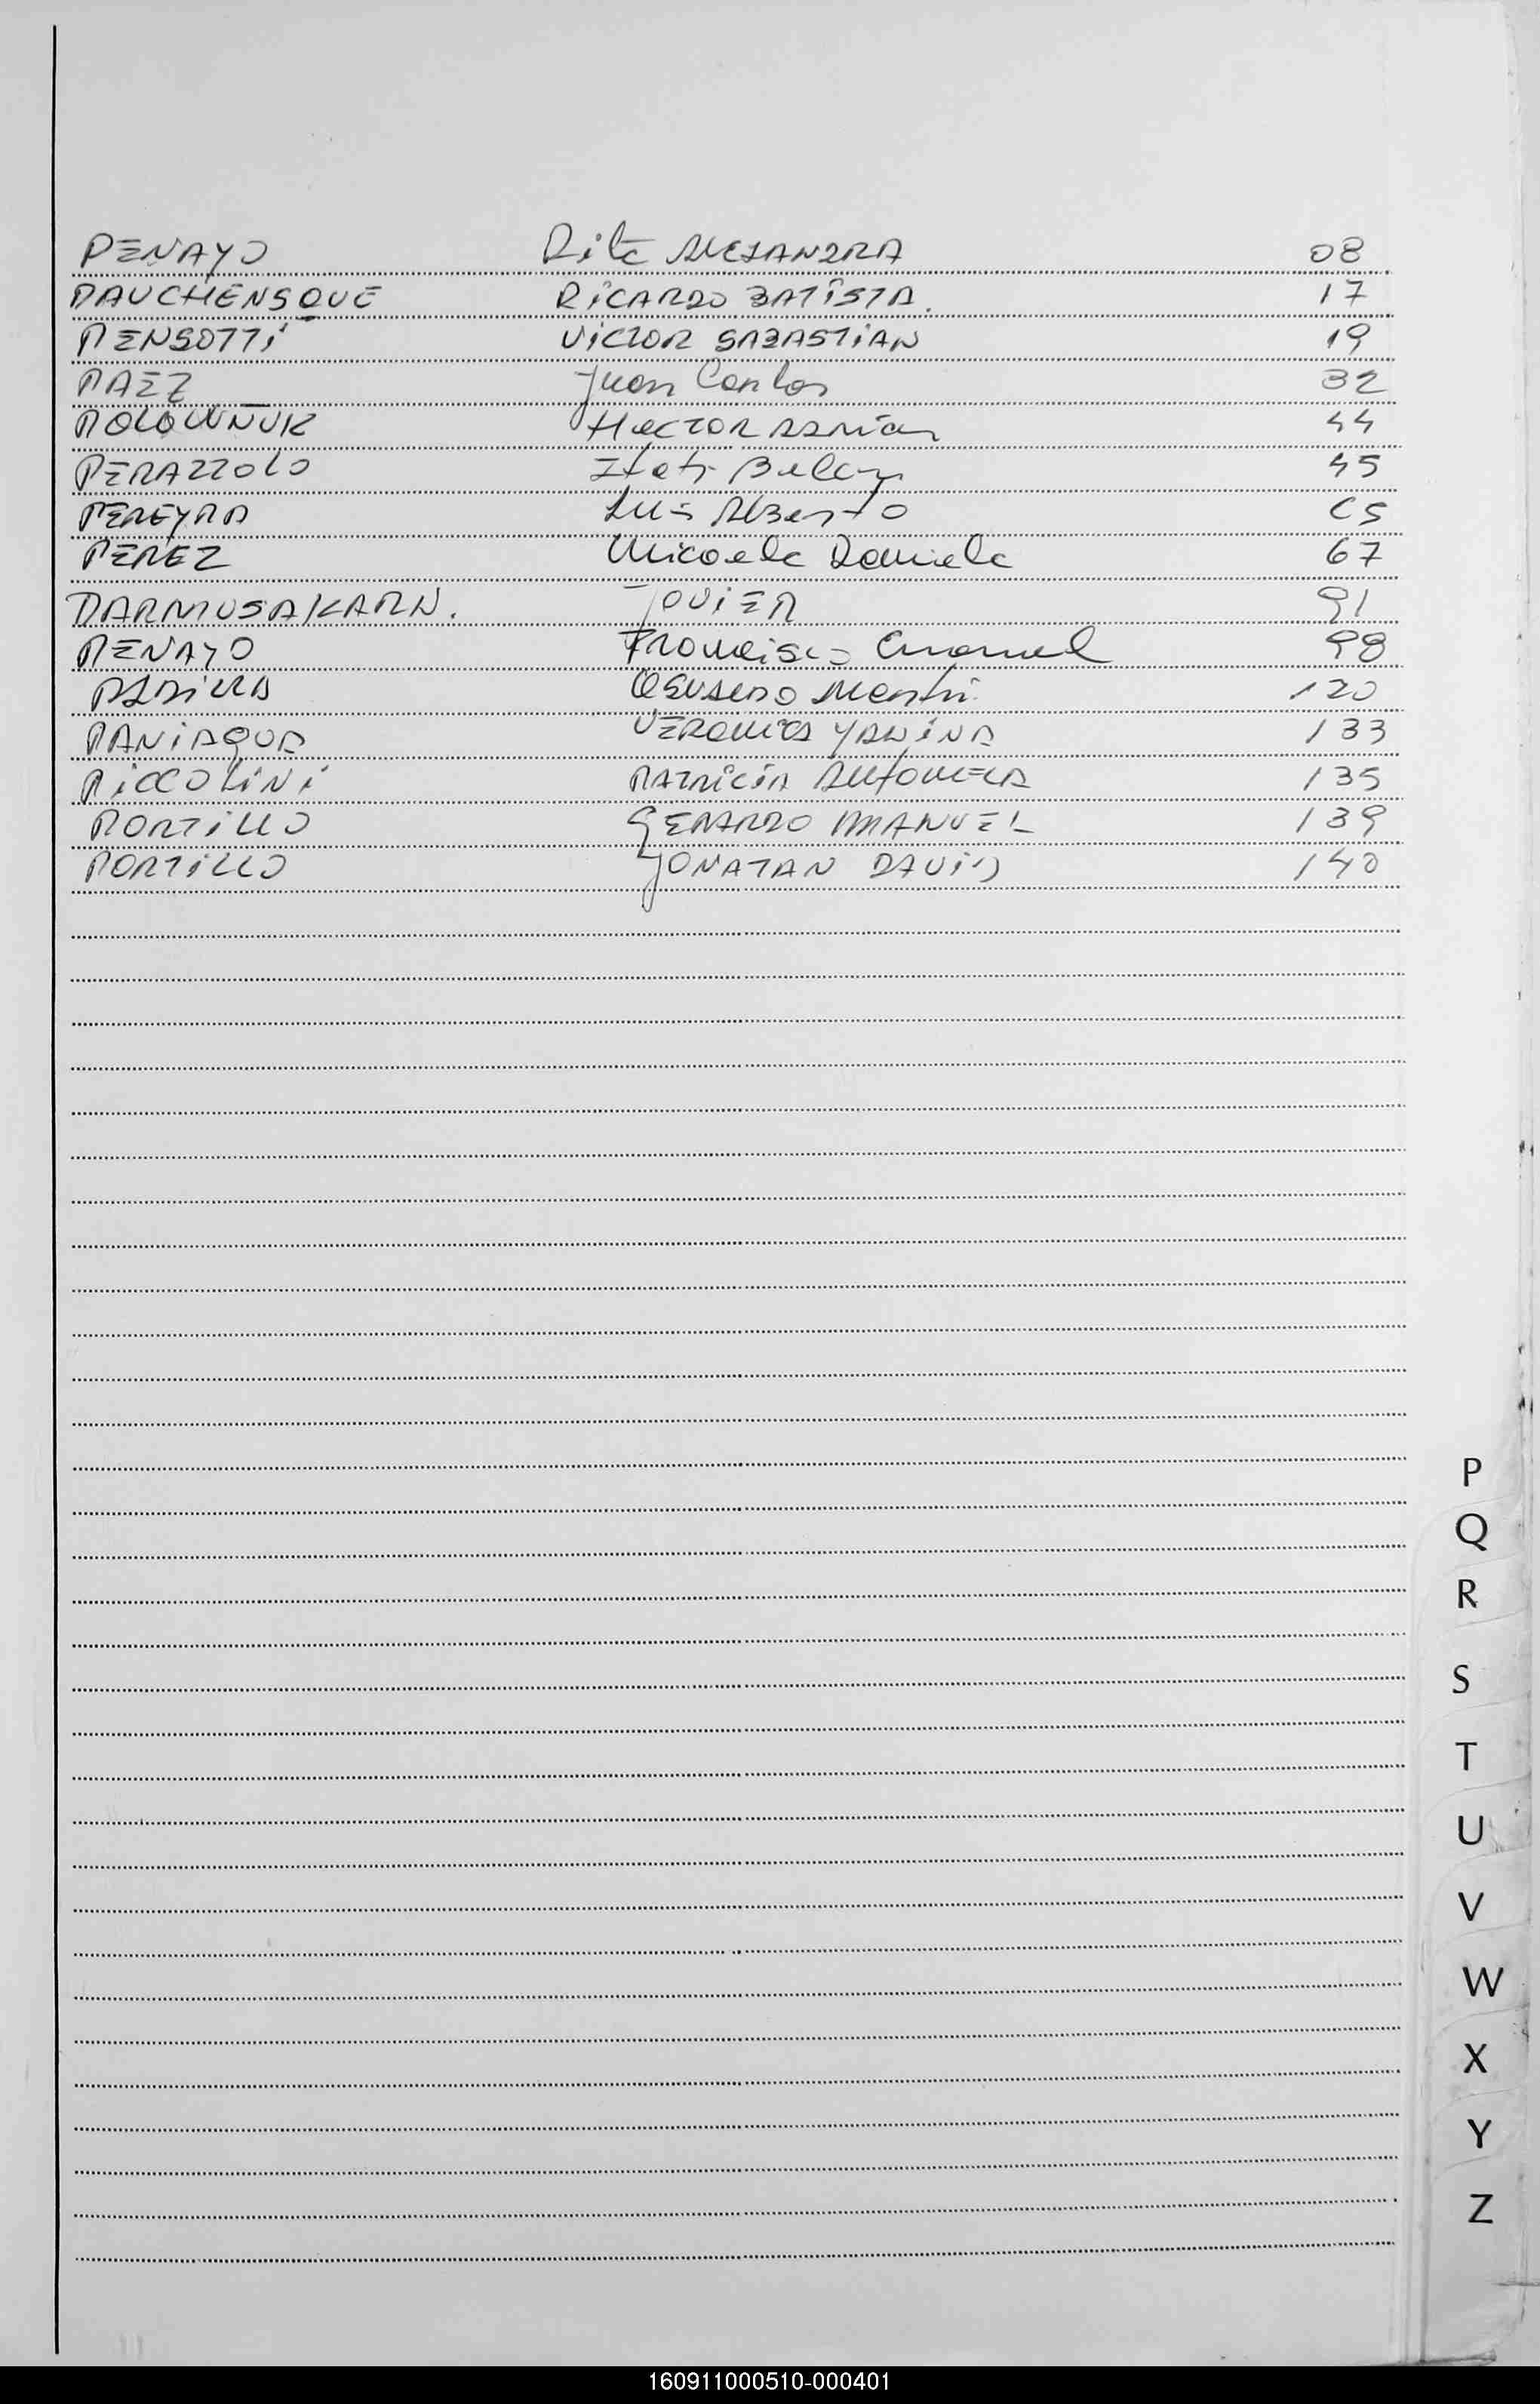 PENAYO Rita ALEJANDRA 08
PAUCHENSQUE RiCARDO BATiSTA. 17
PENSOTTi ViCTOR SABASTiAN 19
PAEZ Juan Carlos 32
POLOWÑUK HecTOR ADRián 44
PERAZZOLO Itati Belen 45
PEREYRA Luis Alberto 65
PEREZ Micaela Daniela 67
PARMUSAKARN. JaViER 91
PENAYO Francisco Emanuel 98
PADiLLA Martin 120
PANiAGUA VERONiCA YANiNA 133
PiCCOLiNi PATRiCiA ANTONELA 135
PORTiLLO GERARDO MANUEL 139
PORTiLLO JONATAN DAViD 140
P
Q
R
S
T
U
V
W
X
Y
Z
160911000510-000401